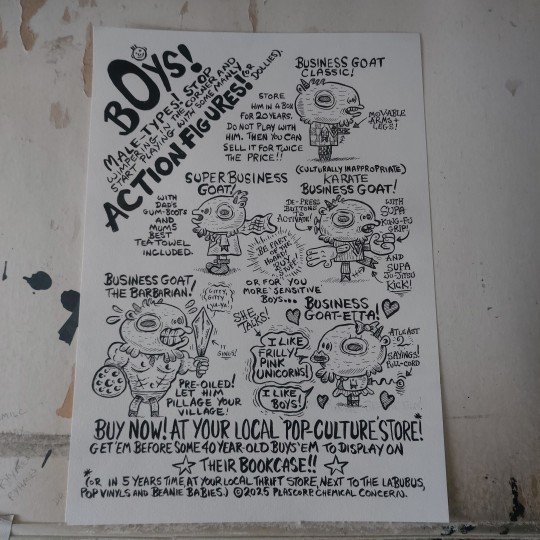 BOYS!
MALE-TYPES! STOP
WIMPERING IN THE CORNER AND
START PLAYING WITH SOME MANLY
ACTION FIGURES! (OR DOLLIES).
BUSINESS GOAT
CLASSIC!
STORE
HIM IN A BOX
FOR 20 YEARS.
DO NOT PLAY WITH
HIM. THEN YOU CAN
SELL IT FOR TWICE
THE PRICE!!
MOVABLE
ARMS +
LEGS!
SUPER BUSINESS
GOAT!
WITH
DAD'S
GUM-BOOTS
AND
MUMS
BEST
TEA-TOWEL
INCLUDED.
(CULTURALLY INAPPROPRIATE)
KARATE
BUSINESS GOAT!
DE-PRESS
BUTTONS
TO
ACTIVATE!
WITH
SUPA
KUNG-FU
GRIP!
AND
SUPA
JU-JITSU
KICK!
BE PART
OF THE
HOARD!
BUY
BUSINESS GOAT
THE BARBARIAN!
IT
PRE-OILED!
LET HIM
PILLAGE YOUR
VILLAGE!
OR FOR YOU
MORE 'SENSITIVE'
BOYS...
BUSINESS
GOAT-ETTA!
SHE
TALKS!
I LIKE
FRILLY
PINK
UNICORNS!
I LIKE
BOYS!
AT LEAST
2
SAYINGS!
PULL-CORD
BUY NOW! AT YOUR LOCAL 'POP-CULTURE' STORE!
GET 'EM BEFORE SOME 40 YEAR-OLD BUYS 'EM TO DISPLAY ON
THEIR BOOKCASE!! *
* (OR IN 5 YEARS TIME, AT YOUR LOCAL THRIFT STORE, NEXT TO THE LABUBUS,
POP VINYLS AND BEANIE BABIES.) © 2025 PLASCORP CHEMICAL CONCERN.